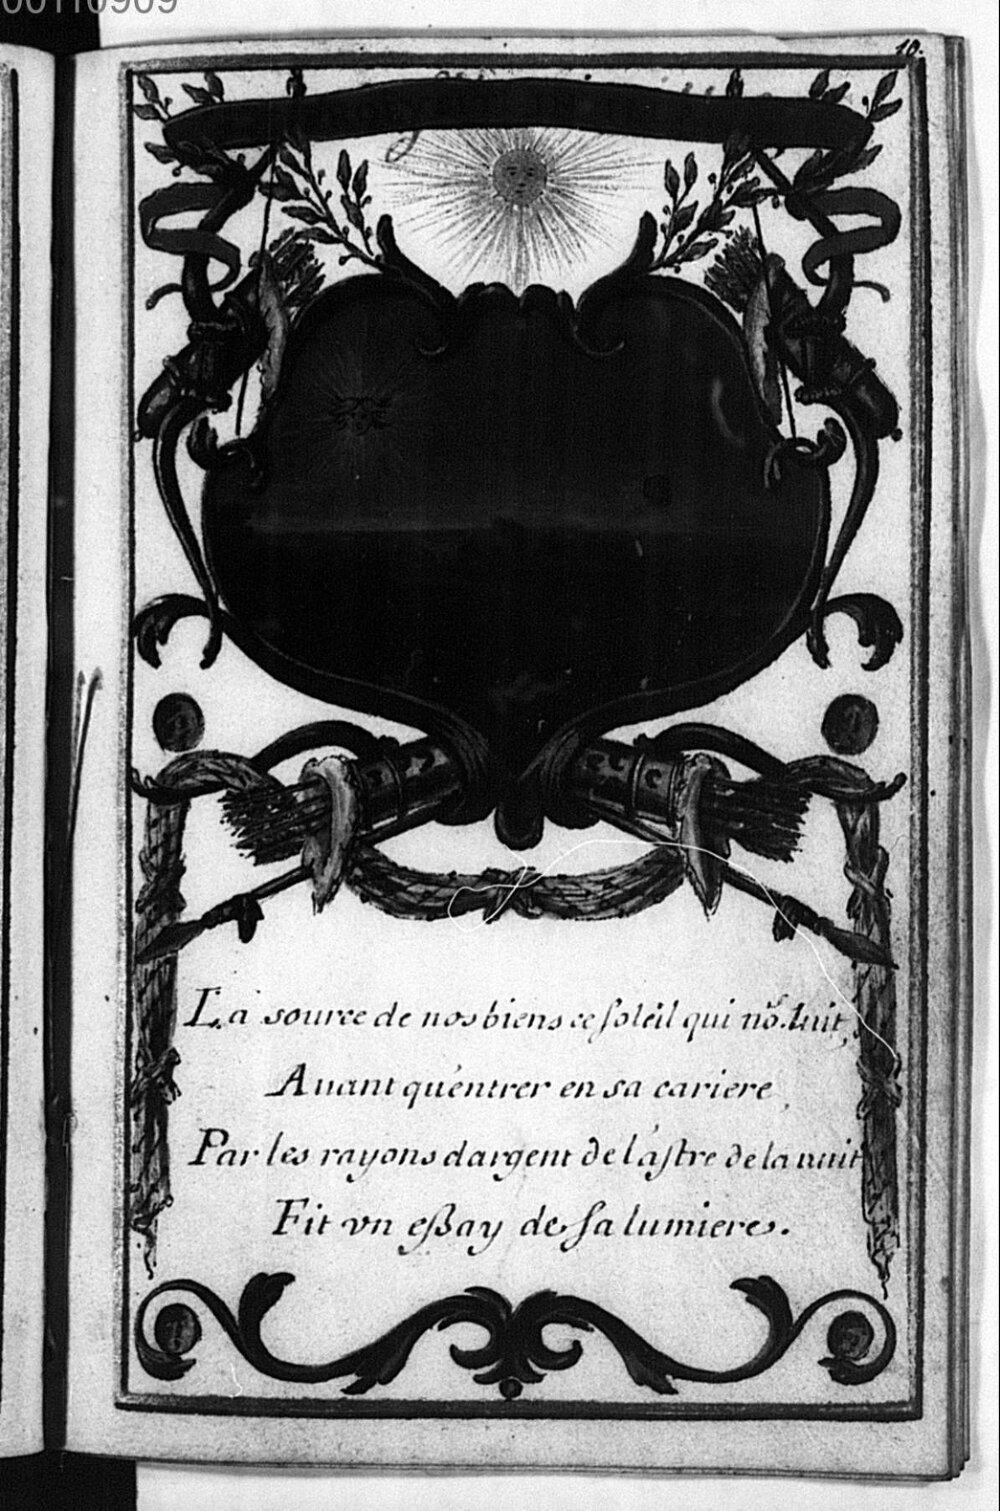 00110909
10.
La source de nos biens ce soleil qui nõ. luit,
Auant qu'entrer en sa cariere,
Par les rayons dargent de l'astre de la nuit
Fit vn eßay de sa lumiere.